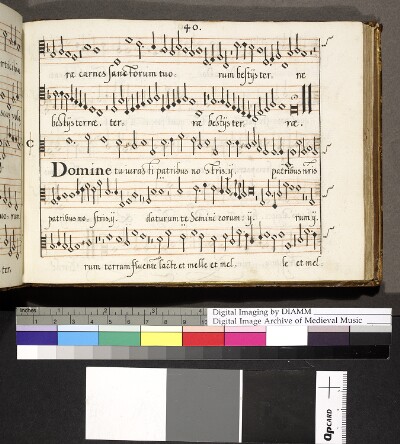 40.
ræ carnes sanctorum tuo: rum bestijs ter. ræ
bestijs terræ. ter: ræ bestijs ter. ræ.
C
Domine tu iurasti patribus no stris.ij. patribus nris
patribus no: stris.ij. daturum te semini eorum: ij. rum ij.
rum terram fluente lacte et melle et mel. le et mel:
ter.
inches 1 2 3
Digital Imaging by DIAMM
Digital Image Archive of Medieval Music
QPCARD